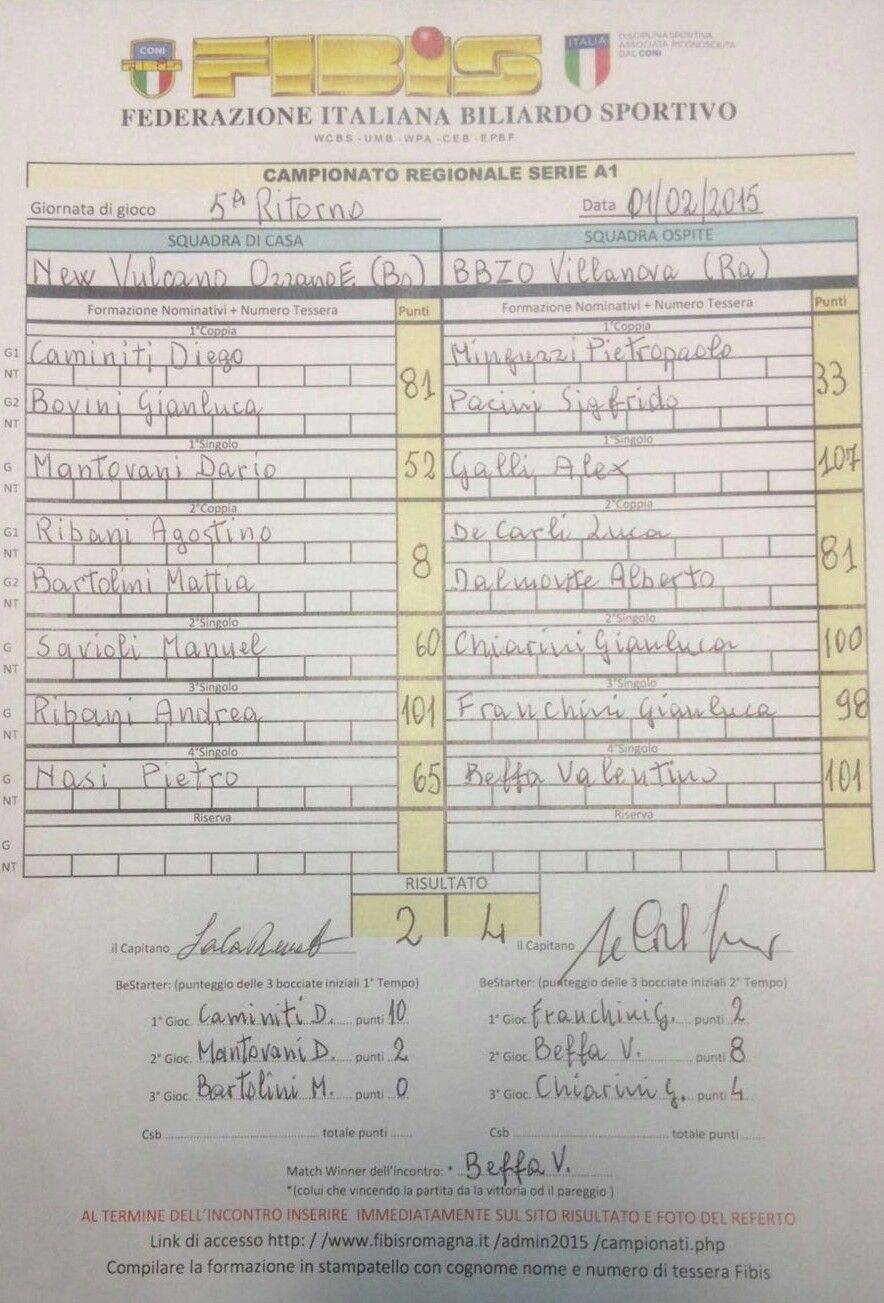 CONI
FIBIS
FIBiS
ITALIA
DISCIPLINA SPORTIVA
ASSOCIATA RICONOSCIUTA
DAL CONI
FEDERAZIONE ITALIANA BILIARDO SPORTIVO
WCBS - UMB - WPA - CEB - EPBF
CAMPIONATO REGIONALE SERIE A1
Giornata di gioco 5A Ritorno Data 01/02/2015
SQUADRA DI CASA SQUADRA OSPITE
New Vulcano Ozzano E. (Bo) BBZO Villanova (Ra)
Formazione Nominativi + Numero Tessera Punti Formazione Nominativi + Numero Tessera Punti
1°Coppia 1°Coppia
G1 Caminiti Diego Minguzzi Pietropaolo
NT 81 33
G2 Bovini Gianluca Pacini Sigfrido
NT
1°Singolo 1°Singolo
G Mantovani Dario 52 Galli Alex 107
NT
2°Coppia 2°Coppia
G1 Ribani Agostino De Carli Luca
NT 8 81
G2 Bartolini Mattia Dalmonte Alberto
NT
2°Singolo 2°Singolo
G Savioli Manuel 60 Chiarini Gianluca 100
NT
3°Singolo 3°Singolo
G Ribani Andrea 101 Franchini Gianluca 98
NT
4°Singolo 4°Singolo
G Nasi Pietro 65 Beffa Valentino 101
NT
Riserva Riserva
G
NT
RISULTATO
2 4
il Capitano il Capitano
BeStarter: (punteggio delle 3 bocciate iniziali 1° Tempo) BeStarter: (punteggio delle 3 bocciate iniziali 2° Tempo)
1° Gioc. Caminiti D. punti 10 1° Gioc. Franchini G. punti 2
2° Gioc. Mantovani D. punti 2 2° Gioc. Beffa V. punti 8
3° Gioc. Bartolini M. punti 0 3° Gioc. Chiarini G. punti 4
Csb ........ totale punti ...... Csb ........ totale punti ......
Match Winner dell'incontro: * Beffa V.
*(colui che vincendo la partita da la vittoria od il pareggio )
AL TERMINE DELL'INCONTRO INSERIRE IMMEDIATAMENTE SUL SITO RISULTATO E FOTO DEL REFERTO
Link di accesso http: / /www.fibisromagna.it /admin2015 /campionati.php
Compilare la formazione in stampatello con cognome nome e numero di tessera Fibis